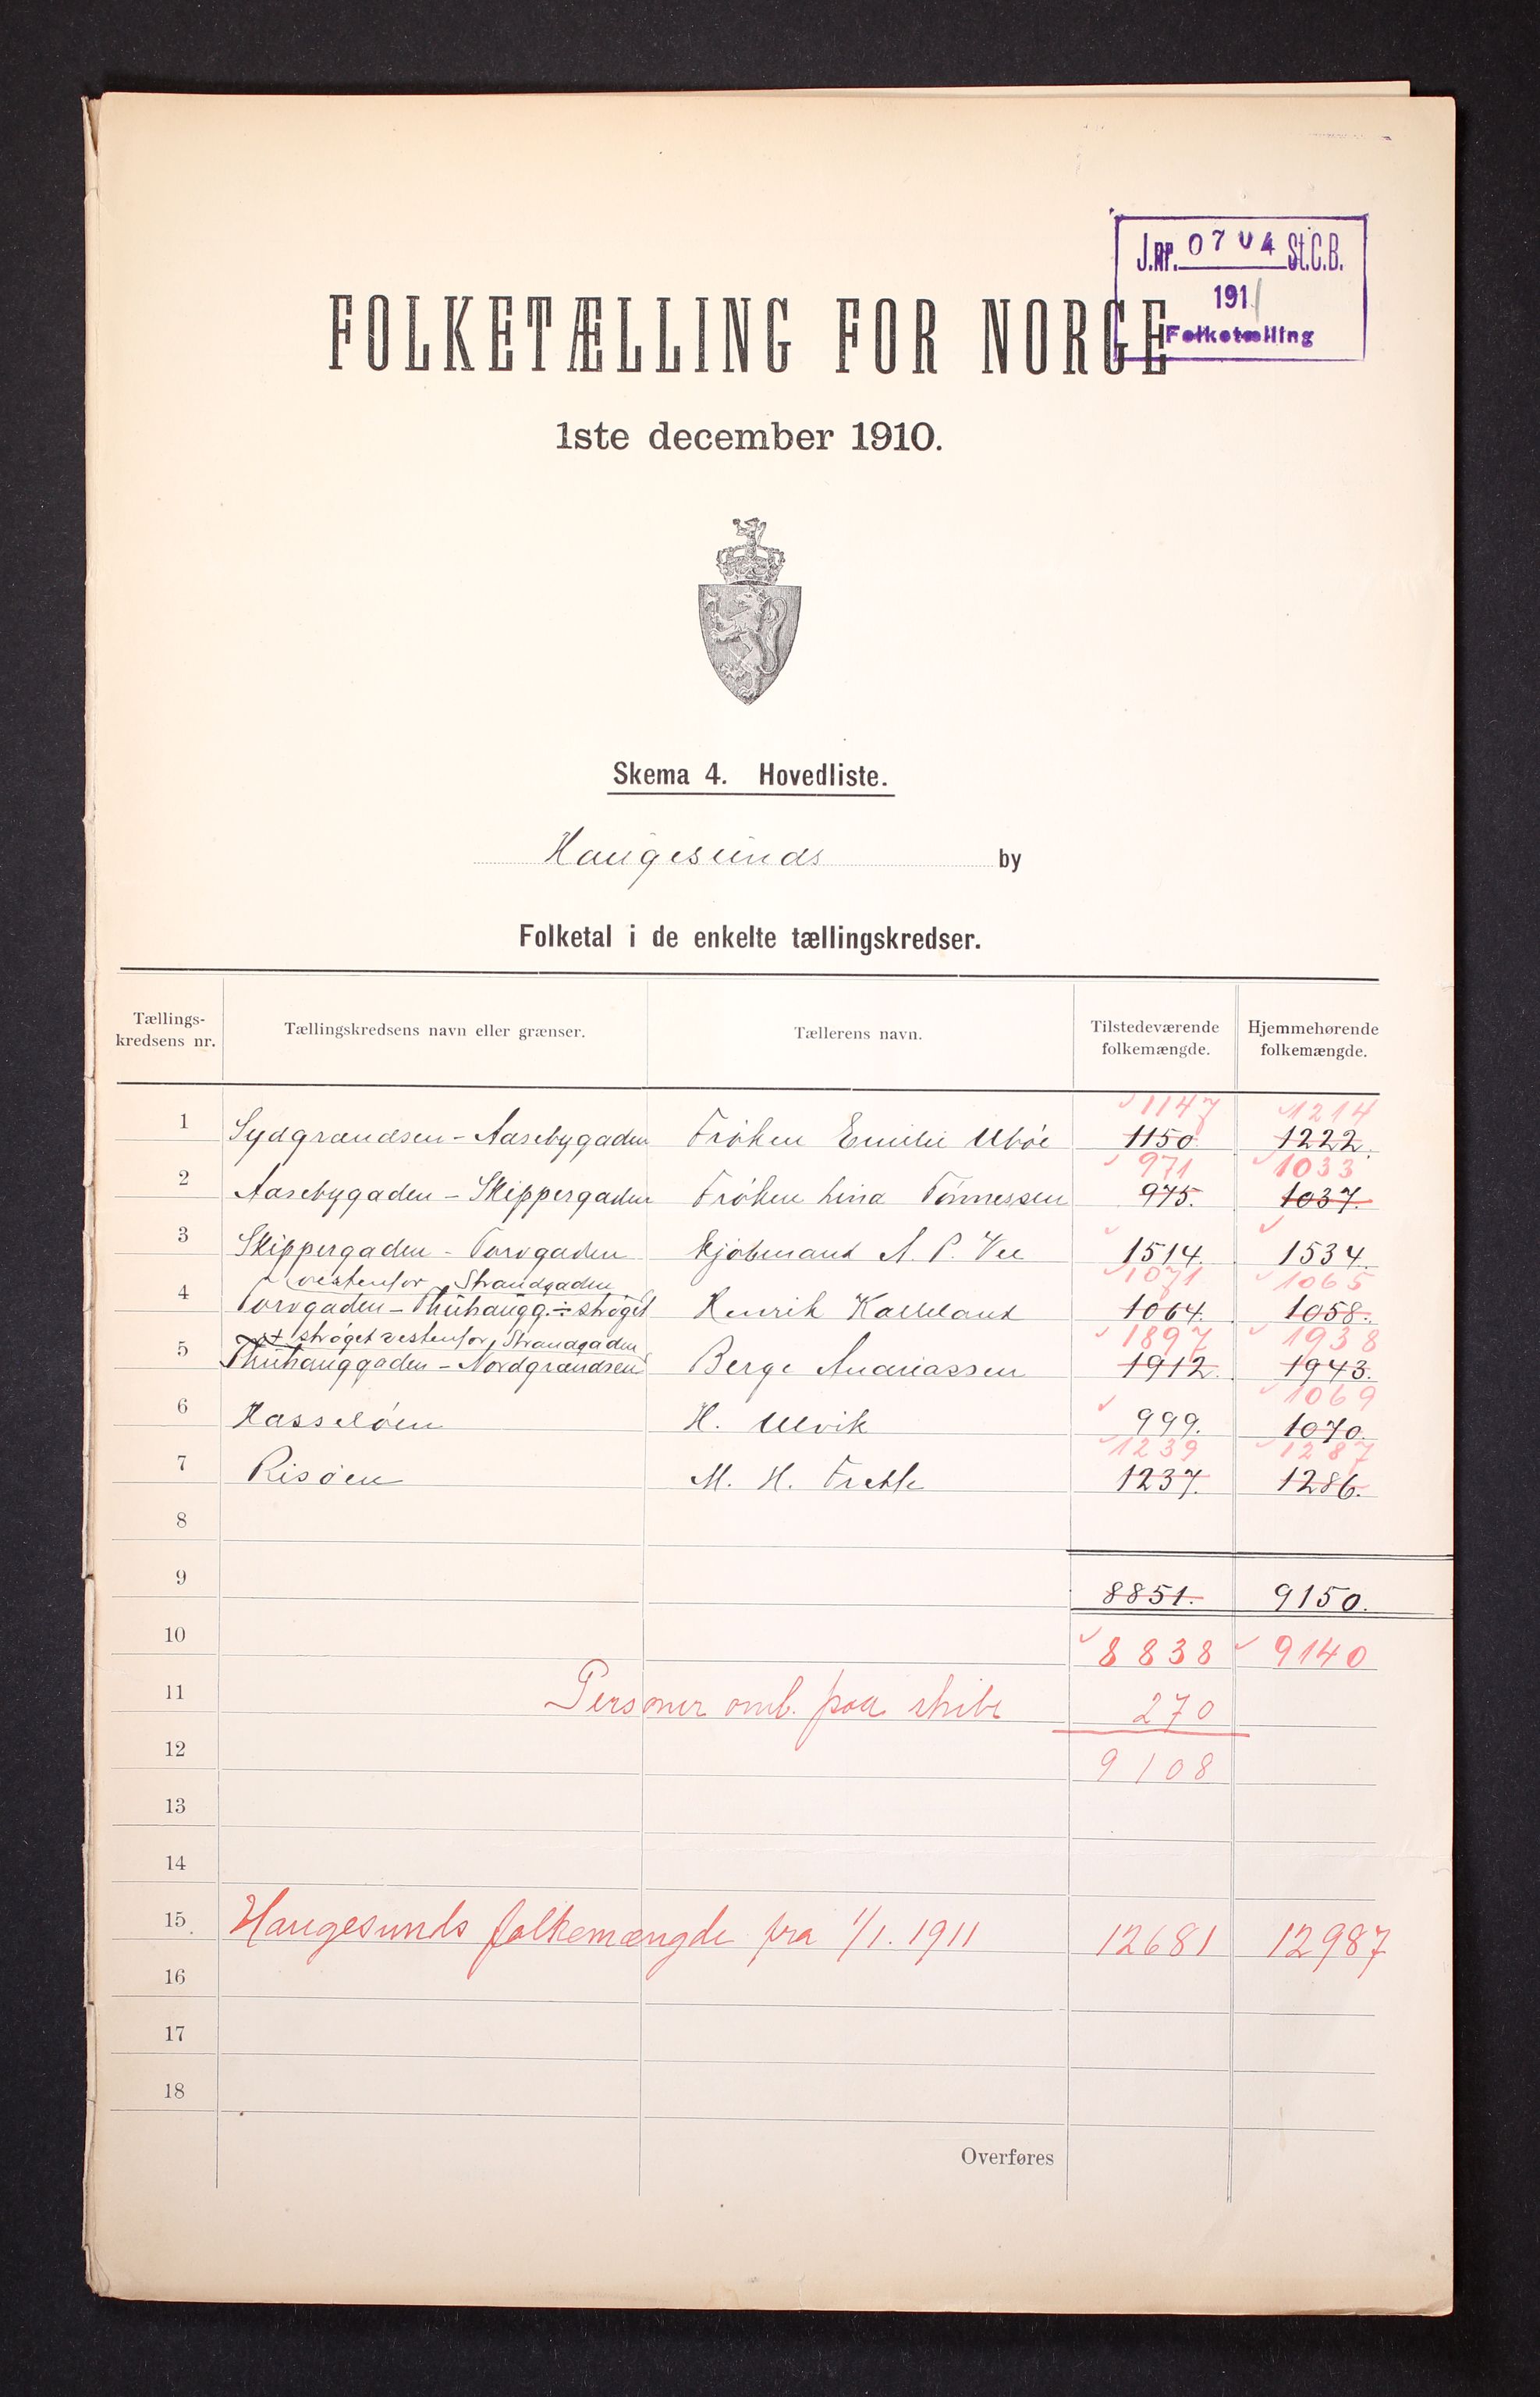 J.nr. 0704 St.C.B.
191/
Folketælling
FOLKETÆLLING FOR NORGE
1ste december 1910.
Skema 4. Hovedliste.
Haugesunds by
Folketal i de enkelte tællingskredser.
Tællings-kredsens nr. Tællingskredsens navn eller grænser. Tællerens navn. Tilstedeværende folkemængde. Hjemmehørende folkemængde.
1147 1214
1 Sydgrændsen - Aasebygaden Frøken Emilie Ubøe 1150. 1222.
971 1033
2 Aasebygaden - Skippergaden Frøken Lina Tönnessen 975. 1037.
3 Skippergaden - Torvgaden Kjøbmand A. P. Vee 1514. 1534.
vestenfor Strandgaden 1071 1065
4 Torvgaden - Thuhaugg. ÷ strøget Henrik Kalleland 1064. 1058.
+ strøget vestenfor Strandgaden 1897 1938
5 Thuhauggaden - Nordgrændsen Berge Andreassen 1912. 1943.
1069
6 Hasseløen H. Ulvik 999. 1070.
1239 1287
7 Risøen M. H. Frette 1237. 1286.
8
9 8851. 9150.
10 8838 9140
11 Personer omb. paa skibe 270
12 9108
13
14
15 Haugesunds folkemængde fra 1/1. 1911 12681 12987
16
17
18
Overføres